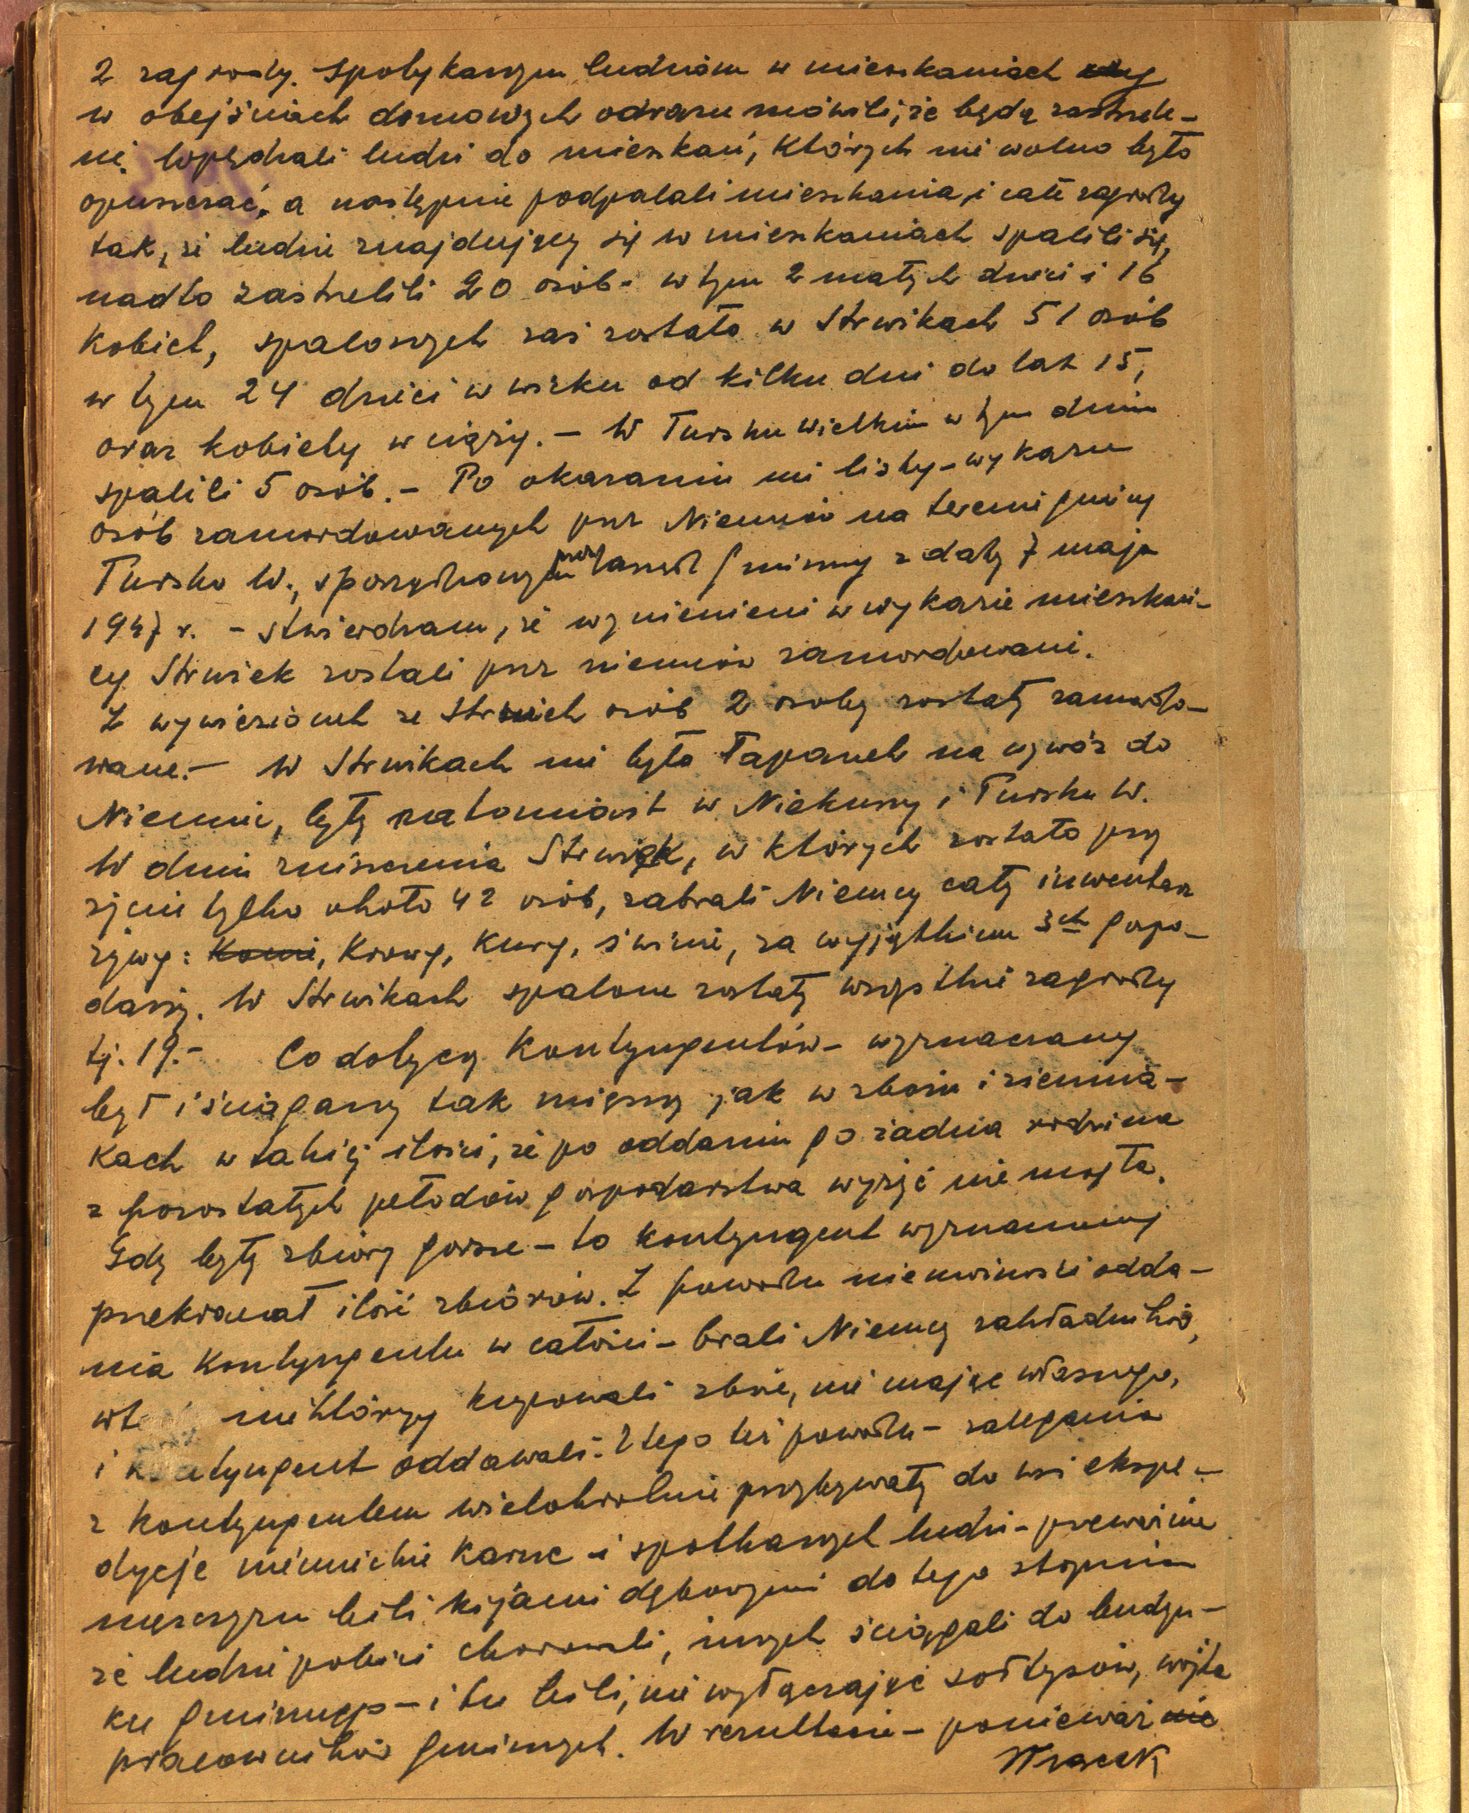 2 zagrody. Spotykanym ludziom w mieszkaniach czy
w obejściach domowych odrazu mówili, że będą zastrzele-
ni. Wpędzali ludzi do mieszkań, których nie wolno było
opuszczać, a następnie podpalali mieszkania i całe zagrody
tak, że ludzie znajdujący się w mieszkaniach spalili się,
nadto zastrzelili 20 osób - w tym 2 małych dzieci i 16
kobiet, spalonych zaś zostało w Strużkach 51 osób
w tym 24 dzieci w wieku od kilku dni do lat 15,
oraz kobiety w ciąży. - W Tursku Wielkim w tym dniu
spalili 5 osób. - Po okazaniu mi listy - wykazu
osób zamordowanych przez Niemców na terenie gminy
Tursko W., sporządzonym przez Zarząd Gminny z datą 7 maja
1947 r. - stwierdzam, że wymienieni w wykazie mieszkań-
cy Strużek zostali przez niemców zamordowani.
Z wywiezionych ze Strużek osób 2 osoby zostały zamordo-
wane. - W Strużkach nie było łapanek na wywóz do
Niemiec, były natomiast w Niekurzy i Tursku W.
W dniu zniszczenia Strużek, w których zostało przy
życiu tylko około 42 osób, zabrali Niemcy cały inwentarz
żywy: Konie, Krowy, Kury, świnie, za wyjątkiem 3ch gospo-
darzy. W Strużkach spalone zostały wszystkie zagrody
tj. 19. - Co dotyczy Kontyngentów - wyznaczany
był i ściągany tak mięsny jak w zbożu i ziemnia-
kach w takiej ilości, że po oddaniu go żadna rodzina
z pozostałych płodów gospodarstwa wyżyć nie mogła.
Gdy były zbiory gorsze - to kontyngent wyznaczony
przekraczał ilość zbiorów. Z powodu nieuiszczenia odda-
nia Kontyngentu w całości - brali Niemcy zakładników,
niektórzy kupowali zboże, nie mając własnego,
i kontyngent oddawali. Z tego też powodu - zalegania
z kontyngentem wielokrotnie przybywały do wsi ekspe-
dycje niemieckie karne i spotkanych ludzi - przeważnie
mężczyzn bili kijami dębowymi do tego stopnia
że ludzie pobici chorowali, innych ściągali do budyn-
ku gminnego - i tu bili, nie wyłączając sołtysów, wójta
pracowników gminnych. W rezultacie - ponieważ nie